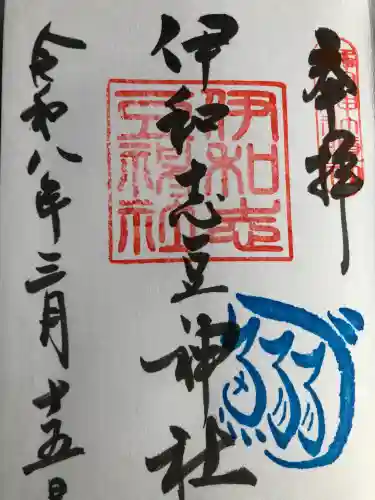 奉拝
伊和志豆神社
伊和志
豆神社
令和八年三月十五日